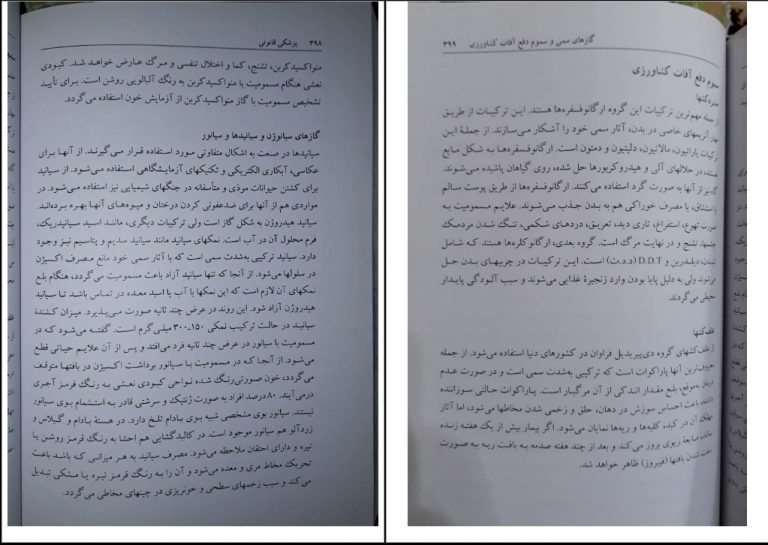 ۳۹۸ پزشکی قانونی
منواکسیدکربن، تشنج، کما و اختلال تنفسی و مرگ عارض خواهد شد. کبودی
نعشی هنگام مسمومیت با منواکسیدکربن به رنگ آلبالویی روشن است. برای تأیید
تشخیص مسمومیت با گاز منواکسیدکربن از آزمایش خون استفاده می‌گردد.
گازهای سیانوژن و سیانیدها و سیانور
سیانیدها در صنعت به اشکال متفاوتی مورد استفاده قرار می‌گیرند. از آنها برای
عکاسی، آبکاری الکتریکی و تکنیکهای آزمایشگاهی استفاده می‌شود. از سیانید
برای کشتن حیوانات موذی و متأسفانه در جنگهای شیمیایی نیز استفاده می‌شود. در
مواردی هم از آنها برای ضدعفونی کردن درختان و میوه‌های آنها بهره برده‌اند.
سیانید هیدروژن به شکل گاز است ولی ترکیبات دیگری، مانند اسید سیانیدریک،
فرم محلول آن در آب است. نمکهای سیانید مانند سیانید سدیم و پتاسیم نیز وجود
دارد. سیانید ترکیبی به‌شدت سمی است که با آثار سمی خود مانع مصرف اکسیژن
در سلولها می‌شود. از آنجا که تنها سیانید آزاد باعث مسمومیت می‌گردد، هنگام بلع
نمکهای آن لازم است که این نمکها با آب یا اسید معده در تماس باشد تا سیانید
هیدروژن آزاد شود. این روند در عرض چند ثانیه صورت می‌پذیرد. میزان کشندهٔ
سیانید در حالت ترکیب نمکی ۱۵۰-۳۰۰ میلی‌گرم است. گفته می‌شود که در
مسمومیت با سیانور در عرض چند ثانیه فرد می‌افتد و پس از آن علایم حیاتی قطع
می‌شود. از آنجا که در مسمومیت با سیانور برداشت اکسیژن در بافتها متوقف
می‌گردد، خون صورتی‌رنگ شده نواحی کبودی نعشی به رنگ قرمز آجری
درمی‌آیند. ۸۰درصد افراد به صورت ژنتیک و سرشتی قادر به استشمام بوی سیانور
نیستند. سیانور بوی مشخصی شبیه بوی بادام تلخ دارد. در هستهٔ بادام و گیلاس و
زردآلو هم سیانور موجود است. در کالبدگشایی هم احشا به رنگ قرمز روشن یا
تیره و دارای احتقان ملاحظه می‌شود. مصرف سیانید به هر میزانی که باشد باعث
تحریک مخاط مری و معده می‌شود و آن را به رنگ قرمز تیره یا مشکی تبدیل
می‌کند و سبب زخمهای سطحی و خونریزی در چینهای مخاطی می‌گردد.
گازهای سمی و سموم دفع آفات کشاورزی ۳۹۹
سموم دفع آفات کشاورزی
حشره‌کشها
از جمله مهم‌ترین ترکیبات این گروه ارگانوفسفره‌ها هستند. این ترکیبات از طریق
مهار آنزیمهای خاصی در بدن، آثار سمی خود را آشکار می‌سازند. از جملهٔ این
ترکیبات پاراتیون، مالاتیون، دلیتیون و دمتون است. ارگانوفسفره‌ها به شکل مایع
هستند، در حلالهای آلی و هیدروکربورها حل شده، روی گیاهان پاشیده می‌شوند.
گاه نیز از آنها به صورت گرد استفاده می‌کنند. ارگانوفسفره‌ها از طریق پوست سالم
یا استنشاق، یا مصرف خوراکی هم به بدن جذب می‌شوند. علایم مسمومیت به
صورت تهوع، استفراغ، تاری دید، تعریق، دردهای شکمی، تنگ شدن مردمک
چشمها، تشنج و در نهایت مرگ است. گروه بعدی، ارگانوکلره‌ها هستند که شامل
لیندن، دیلدرین و D.D.T (د.د.ت) است. این ترکیبات در چربیهای بدن حل
می‌شوند ولی به دلیل پایا بودن وارد زنجیرهٔ غذایی می‌شوند و سبب آلودگی پایدار
محیطی می‌گردند.
علف‌کشها
از علف کشهای گروه دی‌پیریدیل فراوان در کشورهای دنیا استفاده می‌شود. از جمله
معروف‌ترین آنها پاراکوات است که ترکیبی به‌شدت سمی است و در صورت عدم
درمان به‌موقع، بلع مقدار اندکی از آن مرگبار است. پاراکوات حالتی سوزاننده
داشته، باعث احساس سوزش در دهان، حلق و زخمی شدن مخاطها می‌شود، اما آثار
مهلک آن در کبد، کلیه‌ها و ریه‌ها نمایان می‌شود. اگر بیمار بیش از یک هفته زنده
بماند، ضایعهٔ ریوی بروز می‌کند و بعد از چند هفته صدمه به بافت ریه به صورت
سفت شدن بافتها (فیبروز) ظاهر خواهد شد.